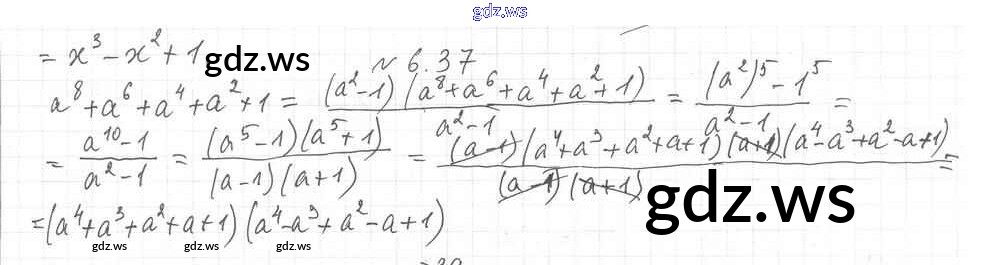 gdz.ws
= x³ − x² + 1 gdz.ws
N 6.37
a⁸ + a⁶ + a⁴ + a² + 1 = (a² − 1)(a⁸ + a⁶ + a⁴ + a² + 1) / (a² − 1) = ((a²)⁵ − 1⁵) / (a² − 1) =
= (a¹⁰ − 1) / (a² − 1) = (a⁵ − 1)(a⁵ + 1) / ((a − 1)(a + 1)) = (a − 1)(a⁴ + a³ + a² + a + 1)(a + 1)(a⁴ − a³ + a² − a + 1) / ((a − 1)(a + 1)) =
gdz.ws
= (a⁴ + a³ + a² + a + 1)(a⁴ − a³ + a² − a + 1)
gdz.ws gdz.ws gdz.ws